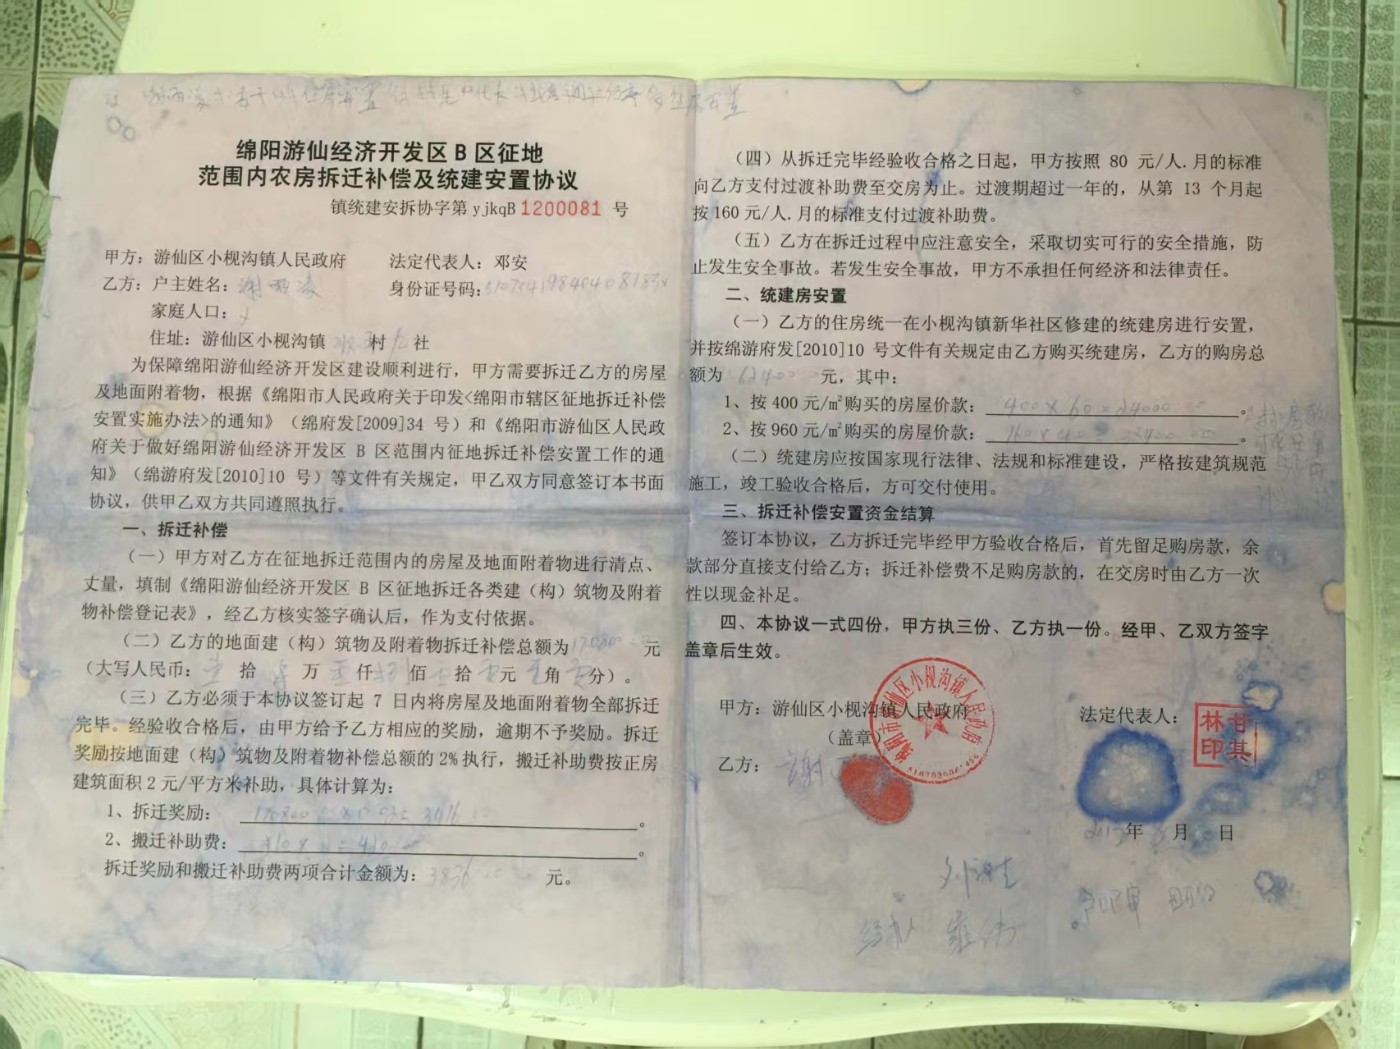 绵阳游仙经济开发区 B 区征地
范围内农房拆迁补偿及统建安置协议
镇统建安拆协字第 yjkqB 1200081 号
甲方：游仙区小枧沟镇人民政府 法定代表人：邓安
乙方：户主姓名： 身份证号码：
家庭人口：
住址：游仙区小枧沟镇 村 社
为保障绵阳游仙经济开发区建设顺利进行，甲方需要拆迁乙方的房屋
及地面附着物，根据《绵阳市人民政府关于印发<绵阳市辖区征地拆迁补偿
安置实施办法>的通知》（绵府发[2009]34 号）和《绵阳市游仙区人民政
府关于做好绵阳游仙经济开发区 B 区范围内征地拆迁补偿安置工作的通
知》（绵游府发[2010]10 号）等文件有关规定，甲乙双方同意签订本书面
协议，供甲乙双方共同遵照执行。
一、拆迁补偿
（一）甲方对乙方在征地拆迁范围内的房屋及地面附着物进行清点、
丈量，填制《绵阳游仙经济开发区 B 区征地拆迁各类建（构）筑物及附着
物补偿登记表》，经乙方核实签字确认后，作为支付依据。
（二）乙方的地面建（构）筑物及附着物拆迁补偿总额为 元
（大写人民币： 拾 万 仟 佰 拾 元 角 分）。
（三）乙方必须于本协议签订起 7 日内将房屋及地面附着物全部拆迁
完毕。经验收合格后，由甲方给予乙方相应的奖励，逾期不予奖励。拆迁
奖励按地面建（构）筑物及附着物补偿总额的 2% 执行，搬迁补助费按正房
建筑面积 2 元/平方米补助，具体计算为：
1、拆迁奖励： 。
2、搬迁补助费： 。
拆迁奖励和搬迁补助费两项合计金额为：3836 元。
（四）从拆迁完毕经验收合格之日起，甲方按照 80 元/人.月的标准
向乙方支付过渡补助费至交房为止。过渡期超过一年的，从第 13 个月起
按 160 元/人.月的标准支付过渡补助费。
（五）乙方在拆迁过程中应注意安全，采取切实可行的安全措施，防
止发生安全事故。若发生安全事故，甲方不承担任何经济和法律责任。
二、统建房安置
（一）乙方的住房统一在小枧沟镇新华社区修建的统建房进行安置，
并按绵游府发[2010]10 号文件有关规定由乙方购买统建房，乙方的购房总
额为 62400 元，其中：
1、按 400 元/㎡购买的房屋价款：400×60=24000 。
2、按 960 元/㎡购买的房屋价款： 。
（二）统建房应按国家现行法律、法规和标准建设，严格按建筑规范
施工，竣工验收合格后，方可交付使用。
三、拆迁补偿安置资金结算
签订本协议，乙方拆迁完毕经甲方验收合格后，首先留足购房款，余
款部分直接支付给乙方；拆迁补偿费不足购房款的，在交房时由乙方一次
性以现金补足。
四、本协议一式四份，甲方执三份、乙方执一份。经甲、乙双方签字
盖章后生效。
甲方：游仙区小枧沟镇人民政府 法定代表人：
（盖章）
林甘
印其
乙方：谢
年 月 日
经办人